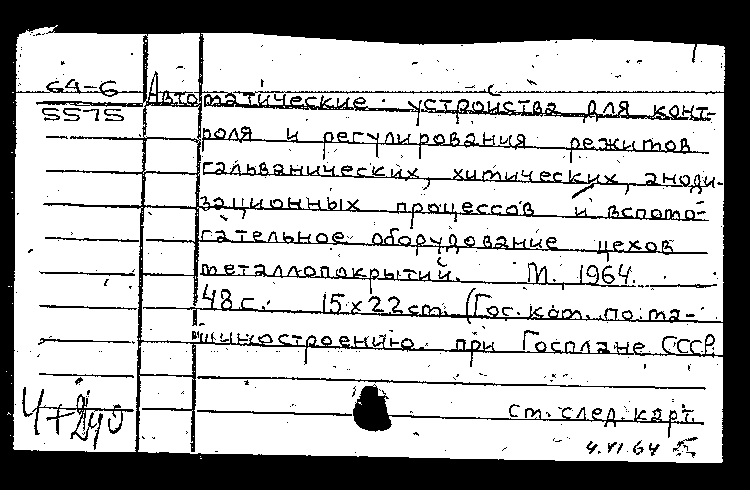 64-6
5575
Автоматические устройства для конт-
роля и регулирования режимов
гальванических, химических, аноди-
зационных процессов и вспомо-
гательное оборудование цехов
металлопокрытий. М., 1964.
48 с. 15 x 22 см. (Гос. ком. по ма-
шиностроению при Госплане СССР.
см. след. карт.
4+290
4.VI 64